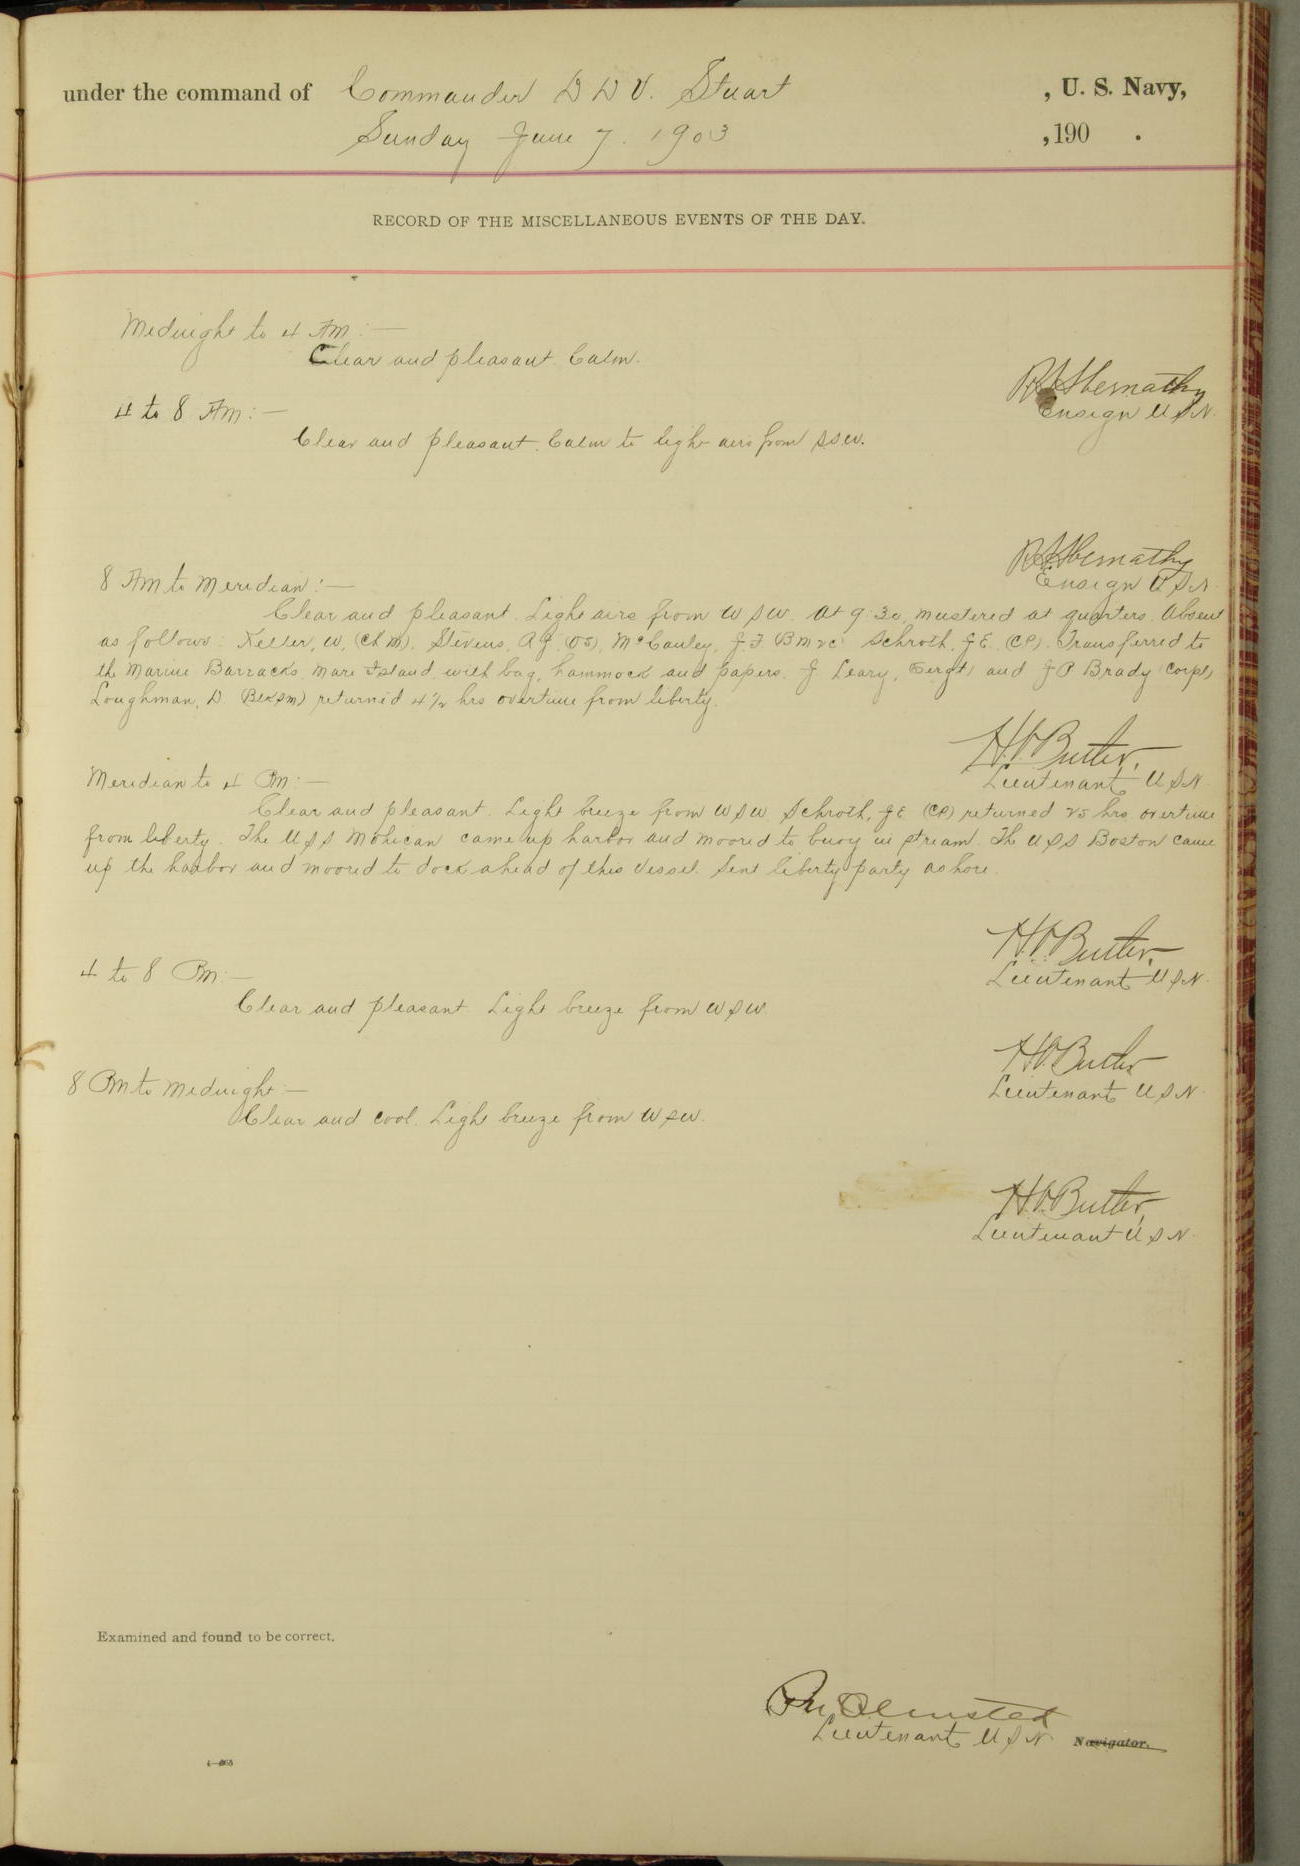 under the command of Commander D D V. Stuart , U. S. Navy,
Sunday June 7. 1903 , 190 .
RECORD OF THE MISCELLANEOUS EVENTS OF THE DAY.
Midnight to 4 AM:—
Clear and pleasant. Calm.
Ensign U S N.
4 to 8 AM:—
Clear and pleasant. Calm to light airs from SSW.
Ensign U S N.
8 AM to Meridian:—
Clear and pleasant. Light airs from W S W. At 9:30, mustered at quarters. Absent
as follows: Keller, W, (Ch M). Stevens, A J (OS), McCauley, J. F BM2C Schroth, J E. (CP). Transferred to
the Marine Barracks Mare Island with bag, hammock and papers. J Leary, (Sergt) and J P Brady (Corpl)
Loughman, D. (Blksm) returned 4 1/2 hrs overtime from liberty.
H. V. Butler,
Lieutenant U S N
Meridian to 4 PM:—
Clear and pleasant. Light breeze from W S W Schroth, J E. (CP) returned 25 hrs overtime
from liberty. The U S S Mohican came up harbor and moored to buoy in stream. The U S S Boston came
up the harbor and moored to dock ahead of this vessel. Sent liberty party ashore.
H. V. Butler,
Lieutenant U S N.
4 to 8 PM:—
Clear and pleasant. Light breeze from W S W.
H. V. Butler
Lieutenant U S N.
8 PM to Midnight—
Clear and cool. Light breeze from W S W.
H. V. Butler,
Lieutenant U S N.
Examined and found to be correct.
Olmsted
Lieutenant U S N. Navigator.